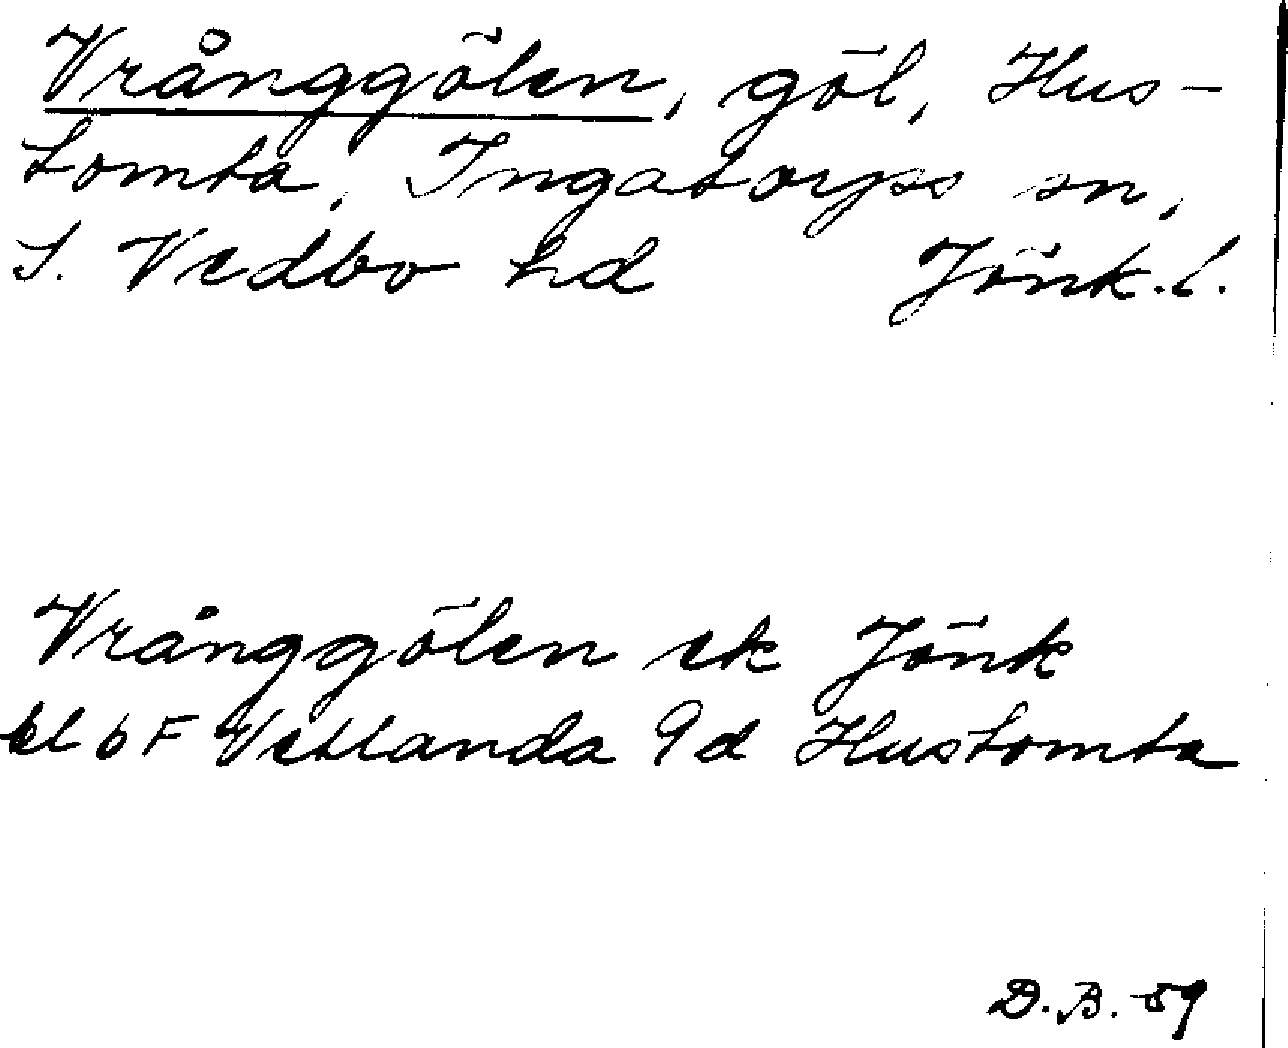 Vrånggölen, göl, Hus-
tomta, Ingatorps sn,
S. Vedbo hd Jönk.l.
Vrånggölen ek Jönk
bl 6 F Vetlanda 9d Hustomta
D.B. -59